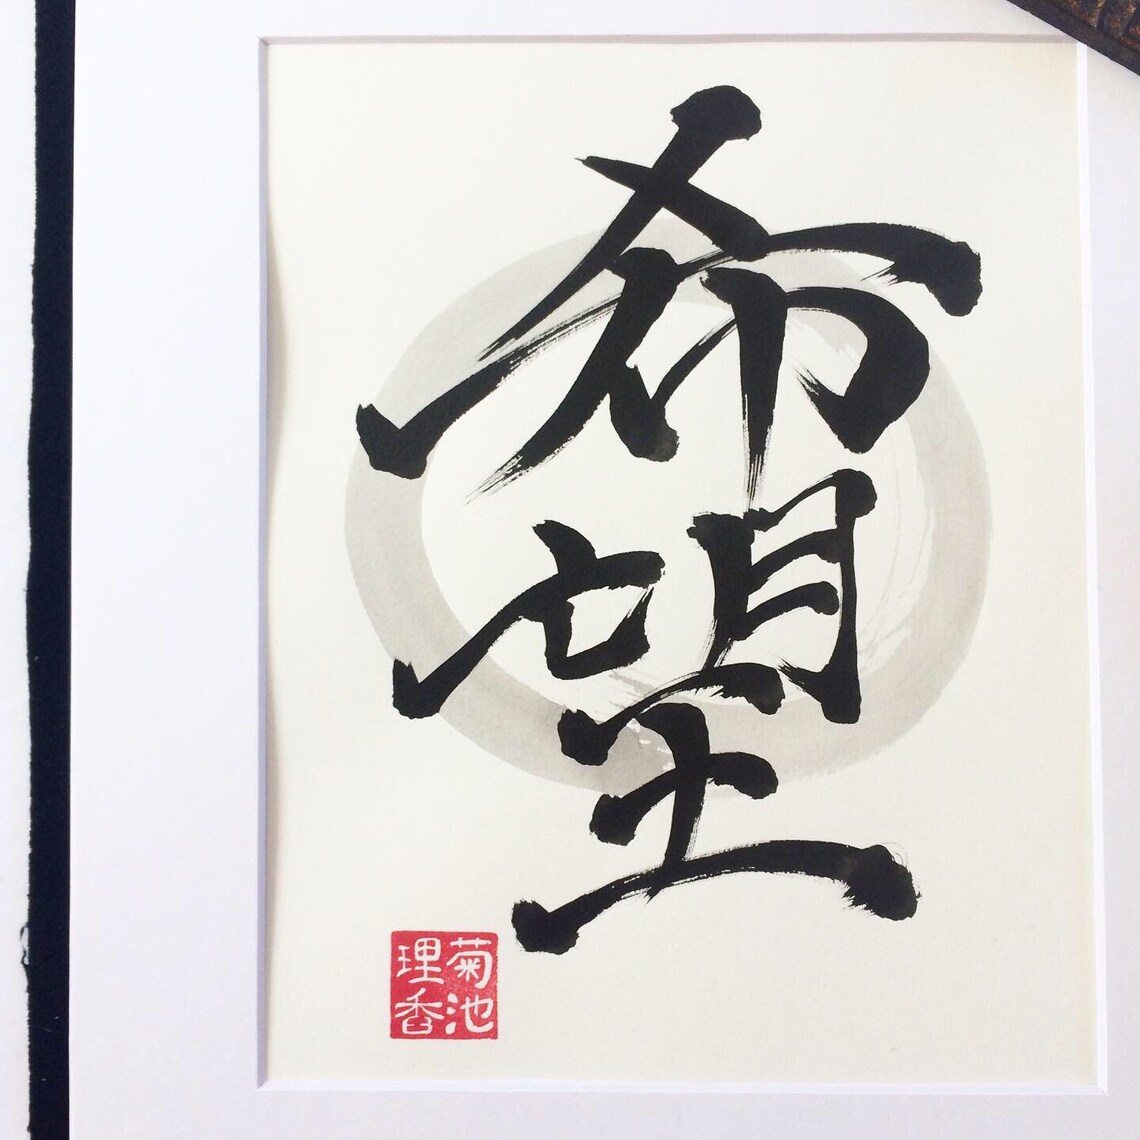 希望
菊池
理香